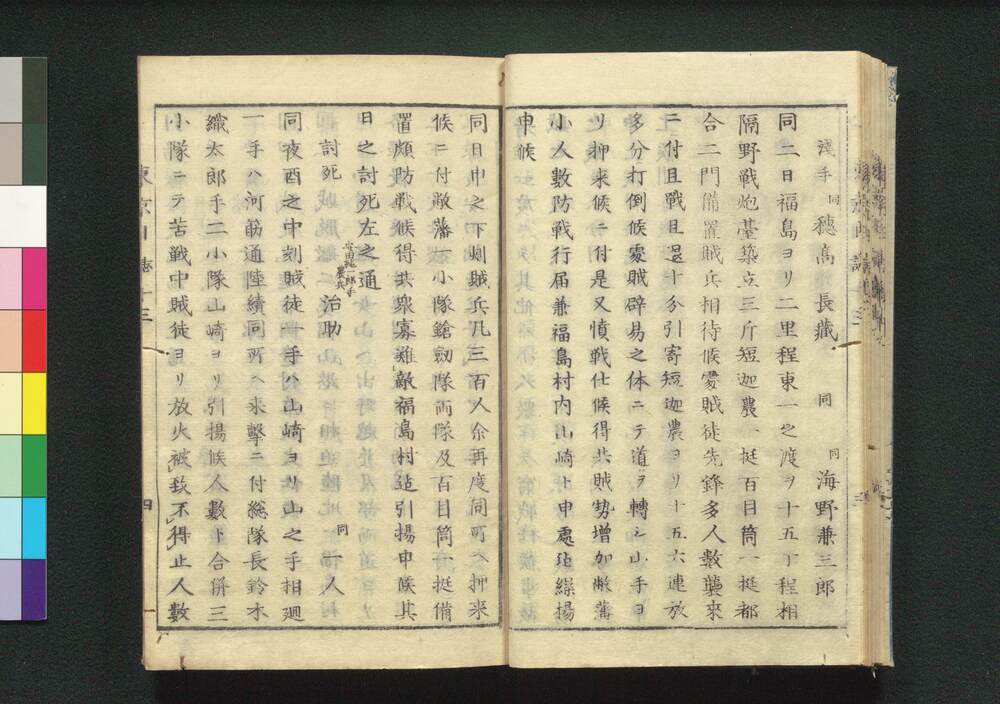 淺手 同 穗高長藏 同 同 海野兼三郎
同二日福島ヨリ二里程東一之渡ヲ十五丁程相
隔野戰炮臺築立三斤短迦農一挺百目筒一挺都
合二門備置賊兵相待候處賊徒先鋒多人數襲來
ニ付且戰且退十分引寄短迦農ヨリ十五六連放
多分打倒候處賊辟易之体ニテ道ヲ轉シ山手ヨ
リ押來候ニ付是又憤戰仕候得共賊勢增加敝藩
小人數防戰行届兼福島村內山崎ト申處迠繰揚
申候
同日申之下刻賊兵凡三百人余再度同所ヘ押来
候ニ付敝藩一小隊鎗劔隊両隊及百目筒一挺備
置頗防戰候得共衆寡難敵福島村迠引揚申候其
日之討死左之通
討死 農兵 治助 同一人
同夜酉之中刻賊徒一手ハ山崎ヨリ山之手相廻
一手ハ河筋通陸續同所ヘ来擊ニ付総隊長鈴木
織太郎手二小隊山崎ヨリ引揚候人數ト合併三
小隊ニテ苦戰中賊徒ヨリ放火被致不得止人數
東京日誌十三
四